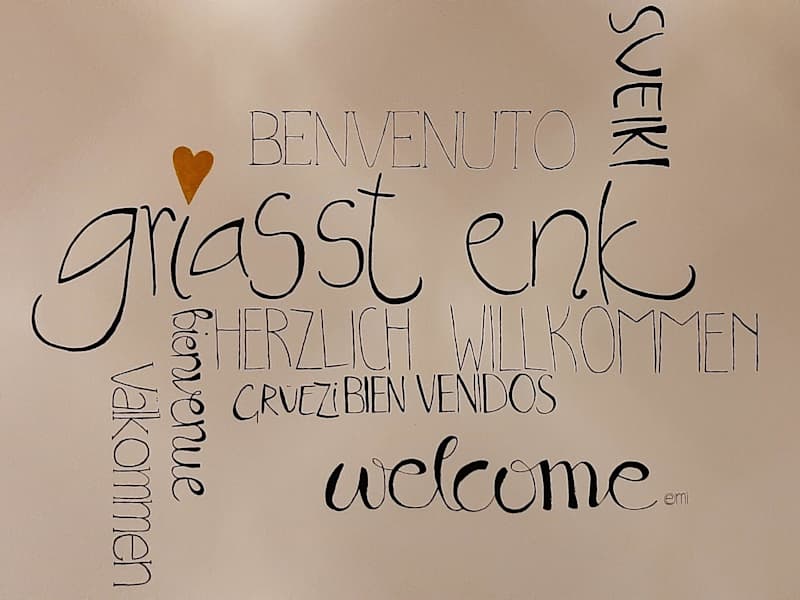 SVEIKI
BENVENUTO
griasst enk
HERZLICH WILLKOMMEN
bienvenue
GRÜEZI BIEN VENIDOS
Välkommen
welcome
emi